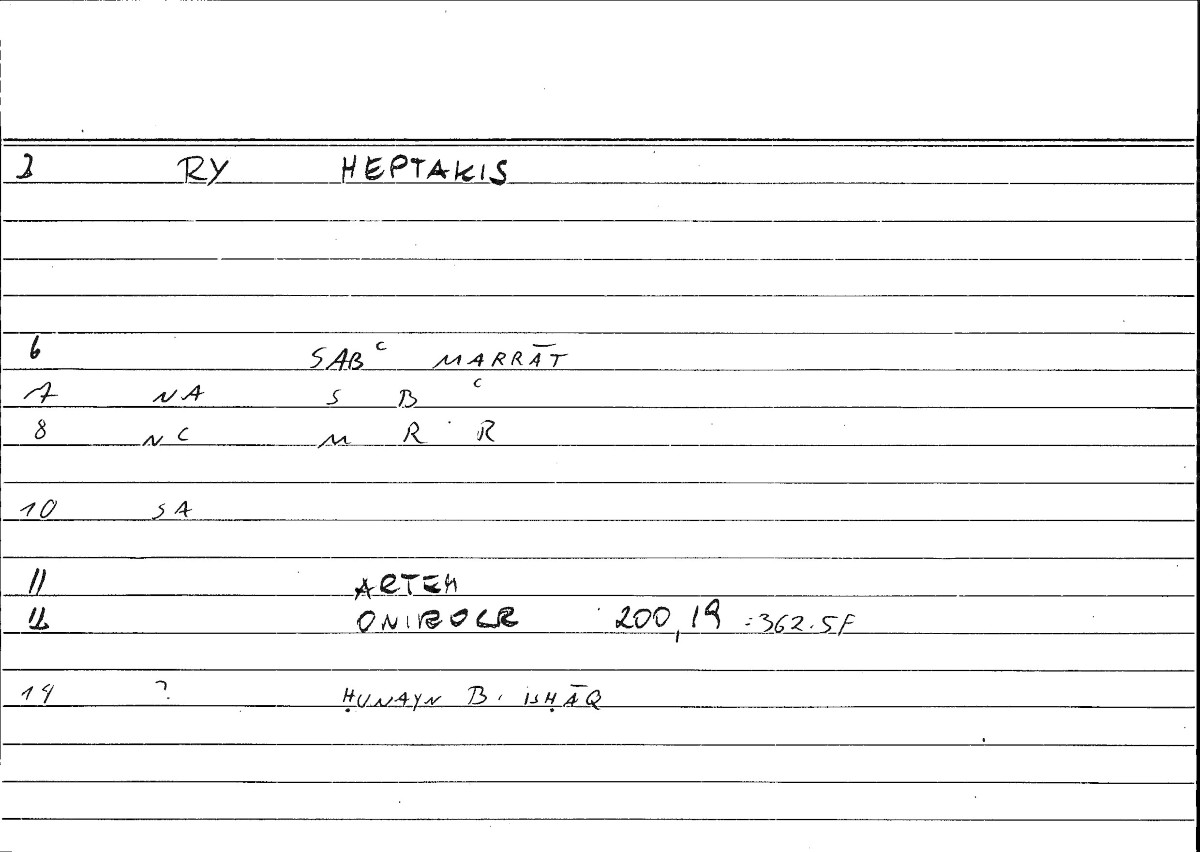 3 RY HEPTAKIS
6 SABᶜ MARRĀT
7 NA S B ᶜ
8 NC M R R
10 SA
11 ARTEM
12 ONIROCR 200,19 :362.5F
14 ? ḤUNAYN B. ISḤĀQ